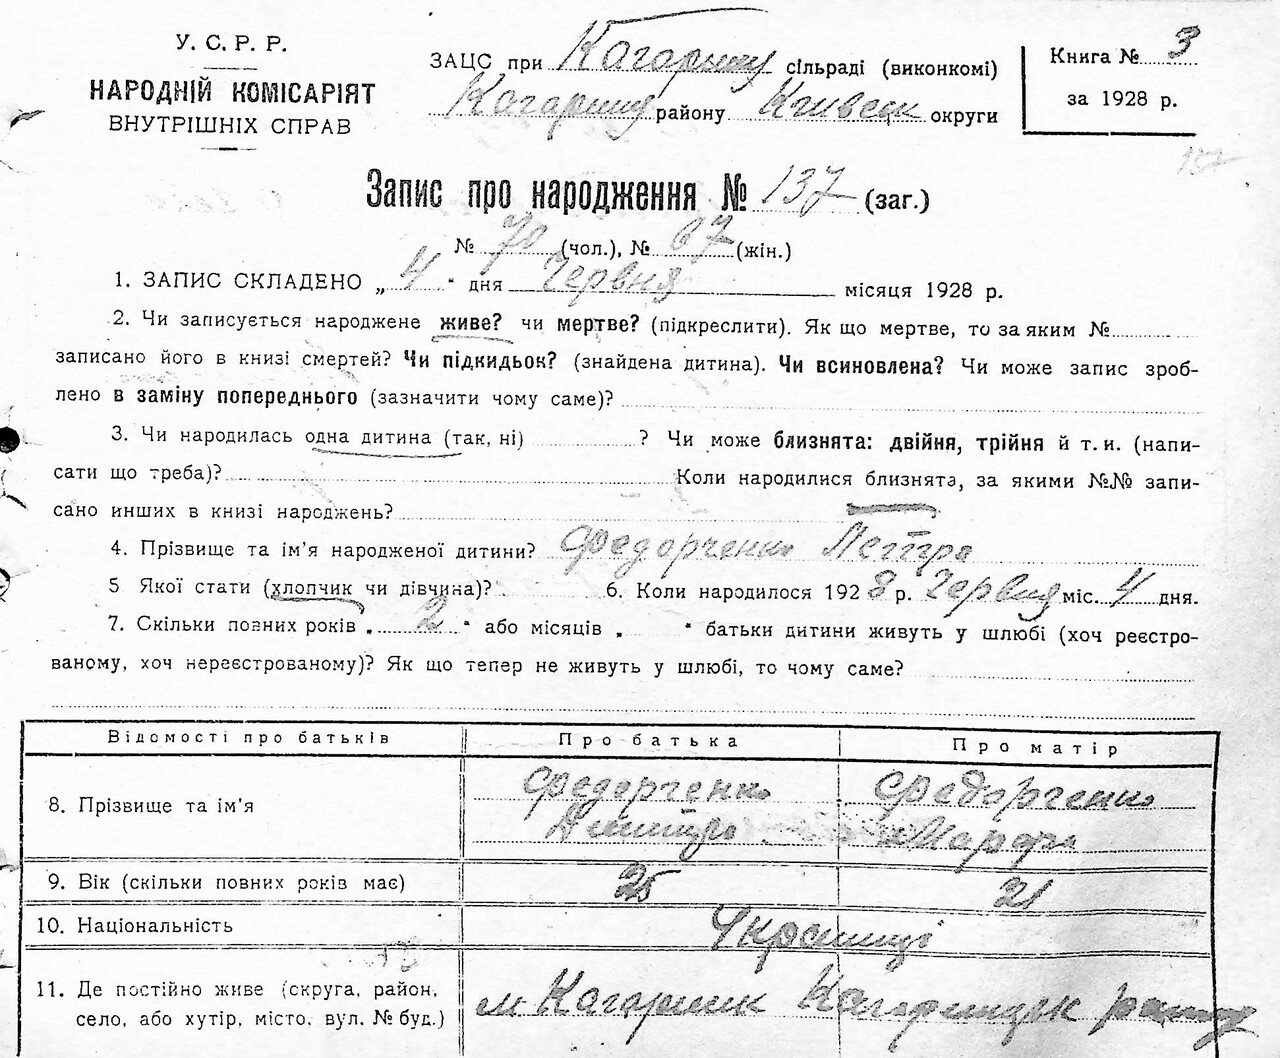 У. С. Р. Р.
НАРОДНІЙ КОМІСАРІЯТ
ВНУТРІШНІХ СПРАВ
ЗАЦС при Кагарлику сільраді (виконкомі)
Кагарлику району Київськ округи
Книга № 3
за 1928 р.
157
Запис про народження № 137 (заг.)
№ 70 (чол.), № 67 (жін.)
1. ЗАПИС СКЛАДЕНО „ 4 " дня Червня місяця 1928 р.
2. Чи записується народжене живе? чи мертве? (підкреслити). Як що мертве, то за яким №
записано його в книзі смертей? Чи підкидьок? (знайдена дитина). Чи всиновлена? Чи може запис зроб-
лено в заміну попереднього (зазначити чому саме)?
3. Чи народилась одна дитина (так, ні) ? Чи може близнята: двійня, трійня й т. и. (напи-
сати що треба)? Коли народилися близнята, за якими №№ запи-
сано инших в книзі народжень?
4. Прізвище та ім'я народженої дитини? Федорченко Петро
5 Якої стати (хлопчик чи дівчина)? 6. Коли народилося 1928 р. Червня міс. 4 дня.
7. Скільки повних років „ 2 " або місяців „ " батьки дитини живуть у шлюбі (хоч реєстро-
ваному, хоч нереєстрованому)? Як що тепер не живуть у шлюбі, то чому саме?
Відомості про батьків Про батька Про матір
8. Прізвище та ім'я Федорченко Федорченко
Дмитро Марфа
9. Вік (скільки повних років має) 25 21
10. Національність Українці
11. Де постійно живе (округа, район,
село, або хутір, місто, вул. № буд.) м Кагарлик Кагарлицьк району